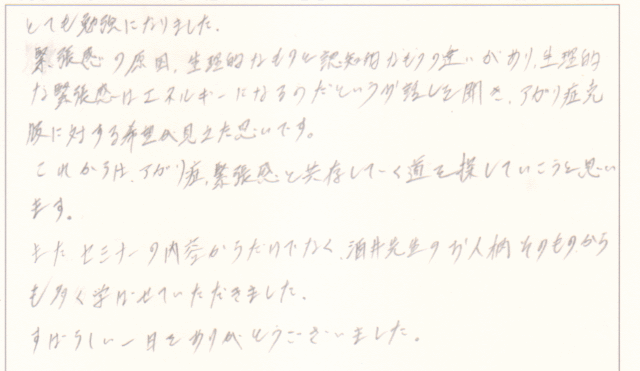 とても勉強になりました.
緊張感の原因、生理的なものと認知的なものの違いがあり、生理的
な緊張感はエネルギーになるのだというお話しを聞き、アガリ症克
服に対する希望が見えた思いです。
これからは、アガリ症、緊張感と共存していく道を探していこうと思い
ます。
またセミナーの内容からだけでなく、酒井先生のお人柄そのものから
も多く学ばせていただきました.
すばらしい一日をありがとうございました。